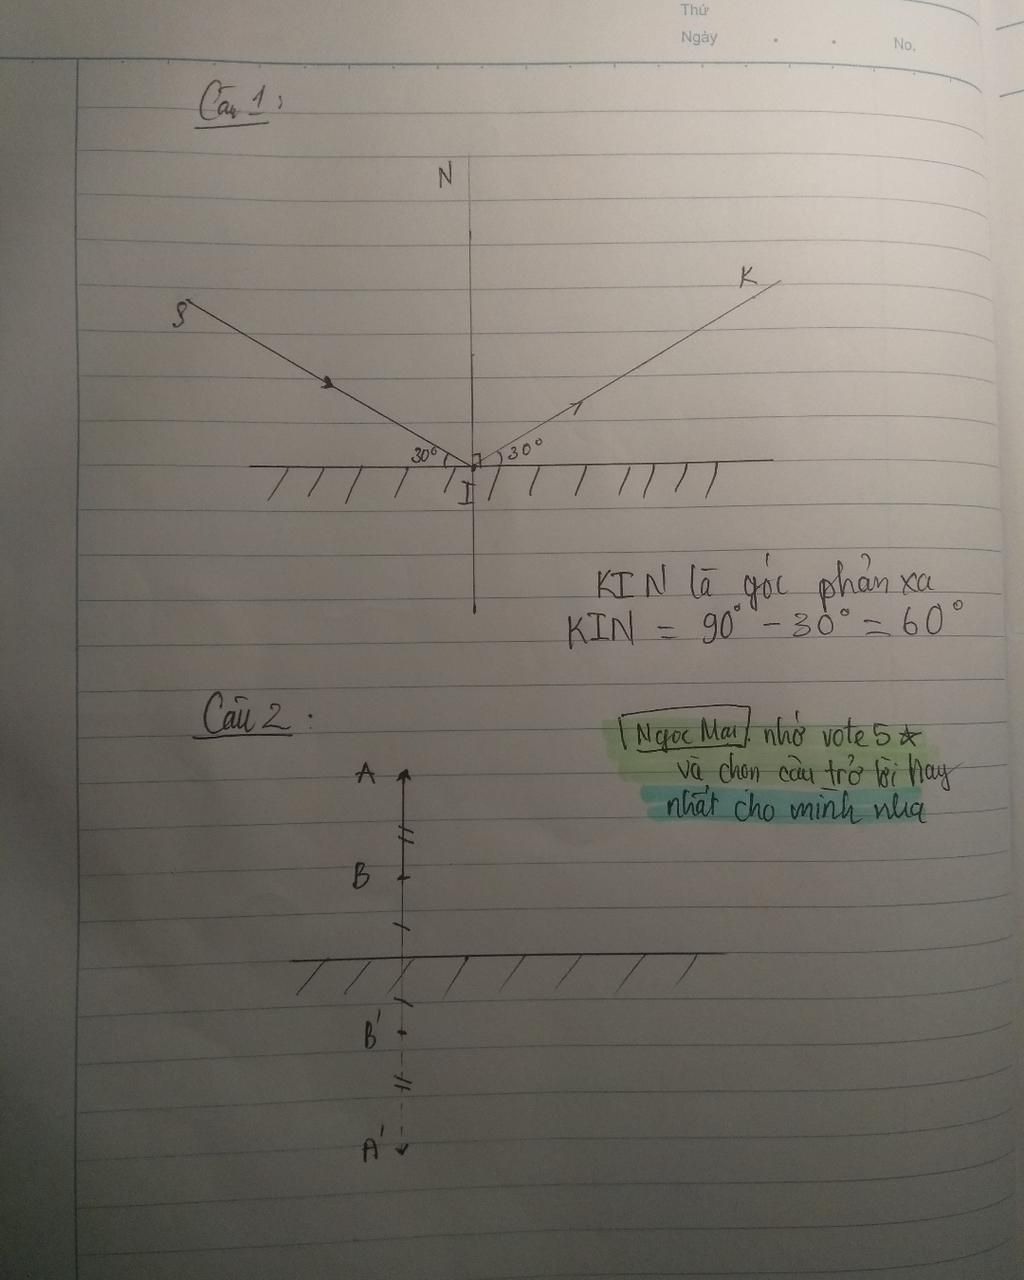 Thứ
Ngày . . No.
Câu 1:
N
K
S
30° 30°
I
KIN là góc phản xạ
KIN = 90° - 30° = 60°
Câu 2:
Ngọc Mai nhớ vote 5 ☆
A
và chọn câu trở lời hay
nhất cho mình nha
B
B'
A'